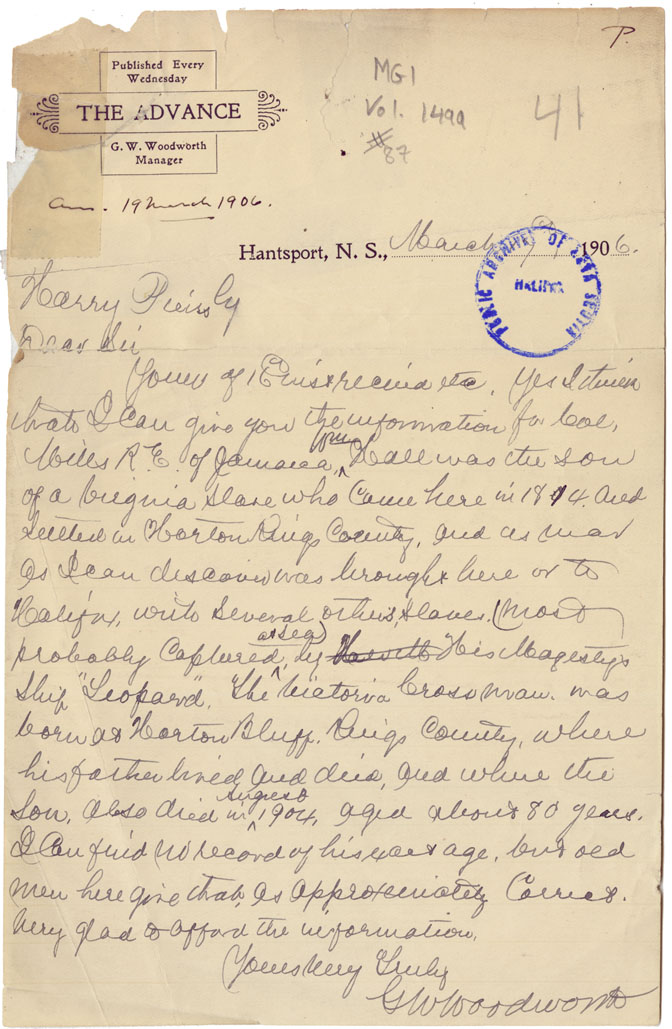 P.
Published Every
Wednesday
THE ADVANCE
G. W. Woodworth
Manager
MG1
Vol. 149a
#87
41
Ans. 19 March 1906.
Hantsport, N. S., March 1906.
PUBLIC ARCHIVES OF NOVA SCOTIA
HALIFAX
Harry Piers
Dear Sir
Yours of inst recived etc. Yes I think
that I can give you the information for Col.
Mills R.E. of Jamaica, Hall was the son
of a Virginia Slave who Came here in 1814. and
Settled in Horton Kings County, and as near
as I can discover was brought here or to
Halifax, with Several others, Slaves. (most
probably Captured, at Sea) by His Magestys
Ship "Leopard". The Victoria Cross man. was
born at Horton Bluff. Kings County, where
his father lived and died, and where the
Son, also died in August 1904, aged about 80 years.
I Can find no record of his exact age, but old
men here give that, as approximately Correct.
Very glad to afford the information.
Yours Very Truly
G W Woodworth